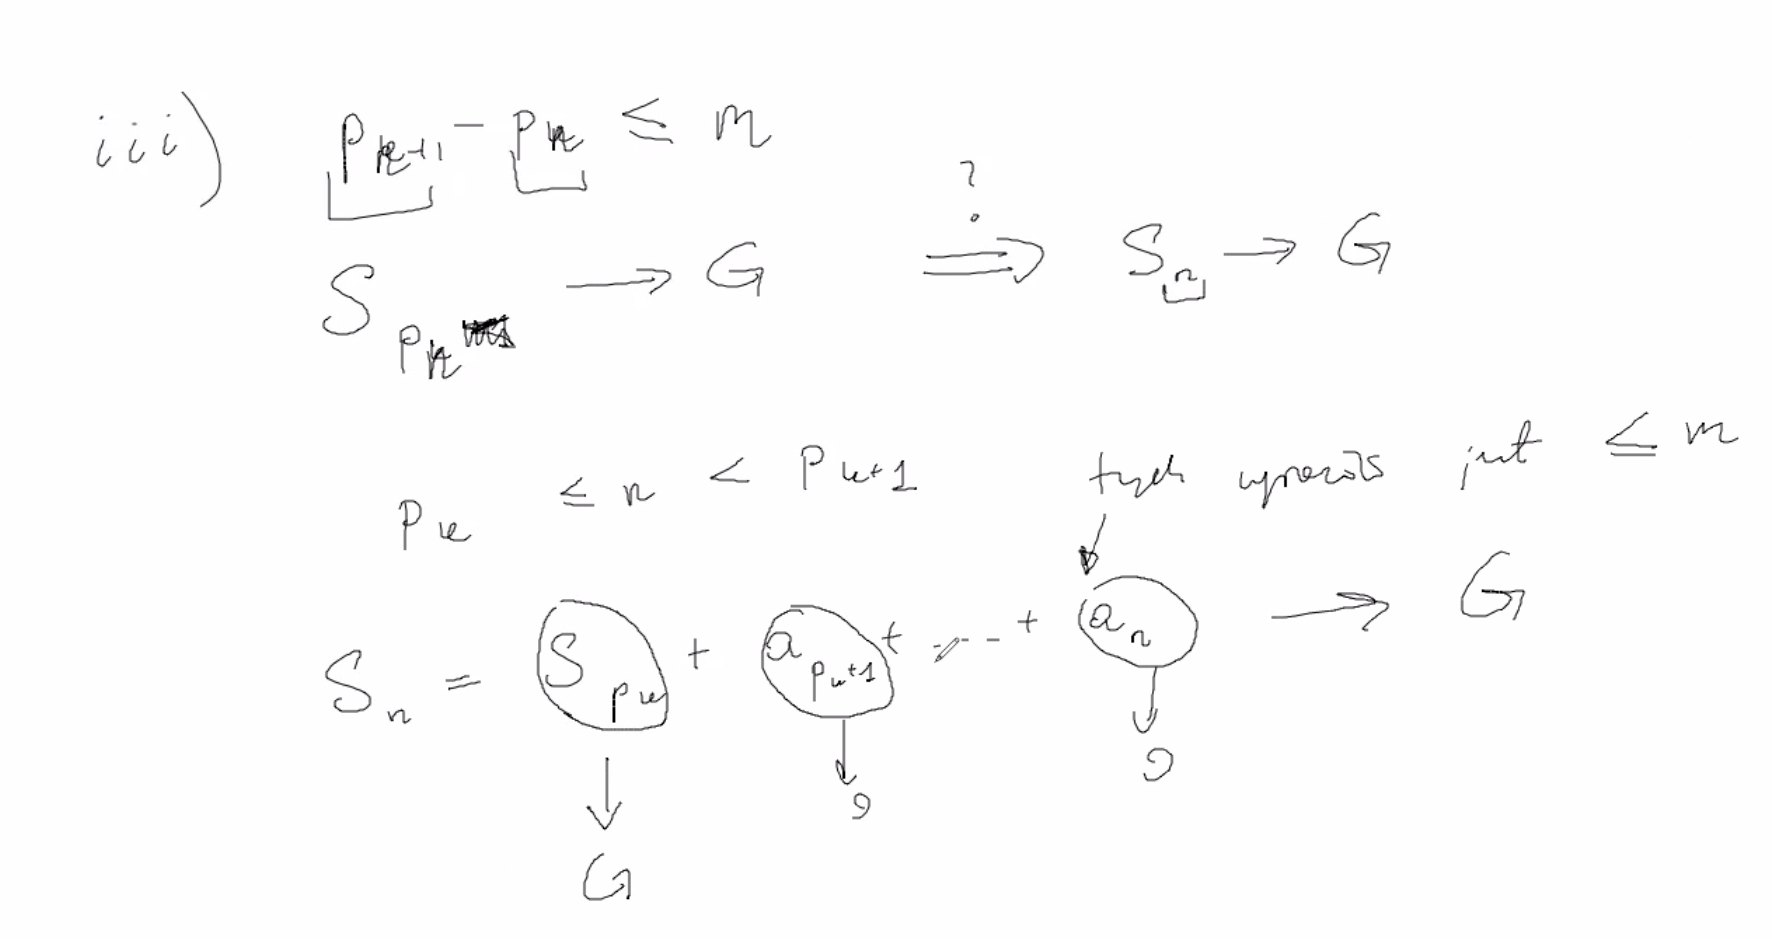 iii) p_{k+1} - p_k ≤ m
?
S_{p_k} → G ⟹ S_n → G
p_k ≤ n < p_{k+1} tych wyrazów jest ≤ m
S_n = S_{p_k} + a_{p_k+1} + ... + a_n → G
↓ G ↓ 0 ↓ 0